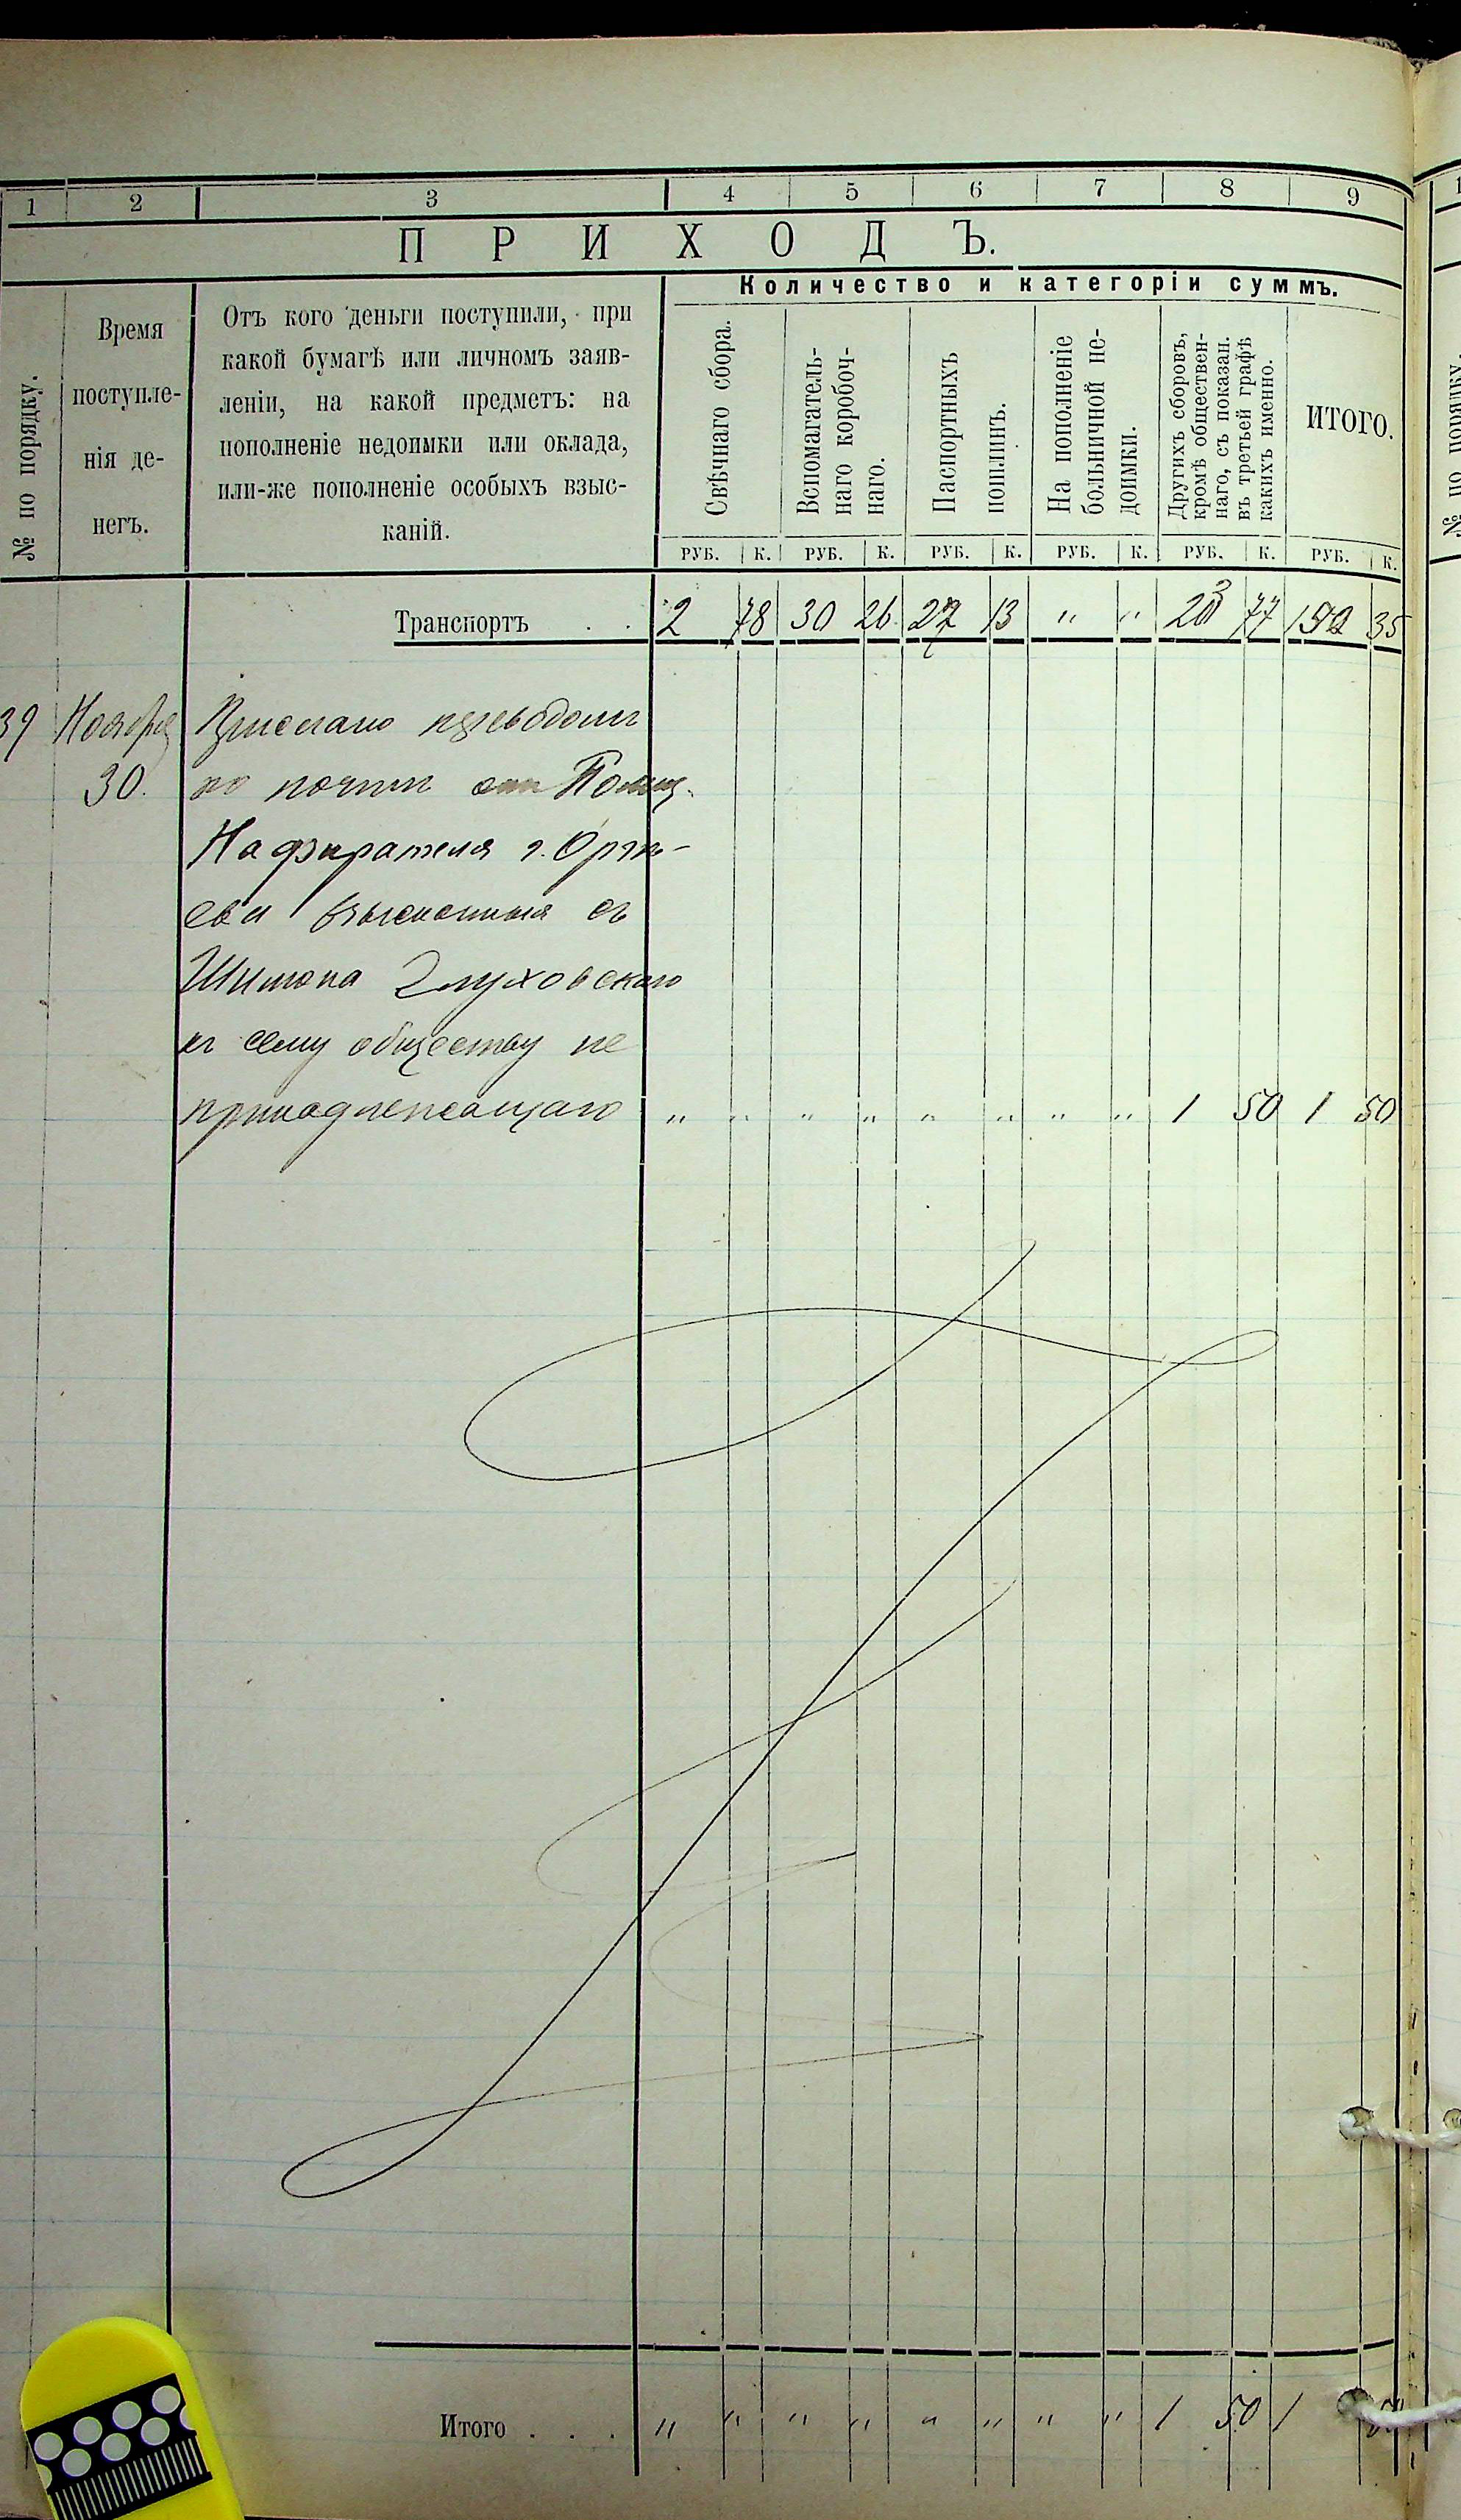 1 2 3 4 5 6 7 8 9
ПРИХОДЪ.
Количество и категоріи суммъ.
№ по порядку.
Время
поступле-
нія де-
негъ.
Отъ кого деньги поступили, при
какой бумагѣ или личномъ заяв-
леніи, на какой предметъ: на
пополненіе недоимки или оклада,
или-же пополненіе особыхъ взыс-
каній.
Свѣчнаго сбора.
Вспомагатель-
наго коробоч-
наго.
Паспортныхъ
пошлинъ.
На пополненіе
больничной не-
доимки.
Другихъ сборовъ,
кромѣ обществен-
наго, съ показан.
въ третьей графѣ
какихъ именно.
ИТОГО.
РУБ. К. РУБ. К. РУБ. К. РУБ. К. РУБ. К. РУБ. К.
Транспортъ . . 2 78 30 26 27 13 " " 77 35
39 Ноября Прислано переводомъ
30. по почтѣ отъ Полиц.
Надзирателя г. Оргѣ-
ева взысканныя съ
Шимона Глуховскаго
къ сему обществу не
принадлежащаго " " " " " " " " 1 50 1 50
Итого . . . " " " " " " " " 1 50 1 50